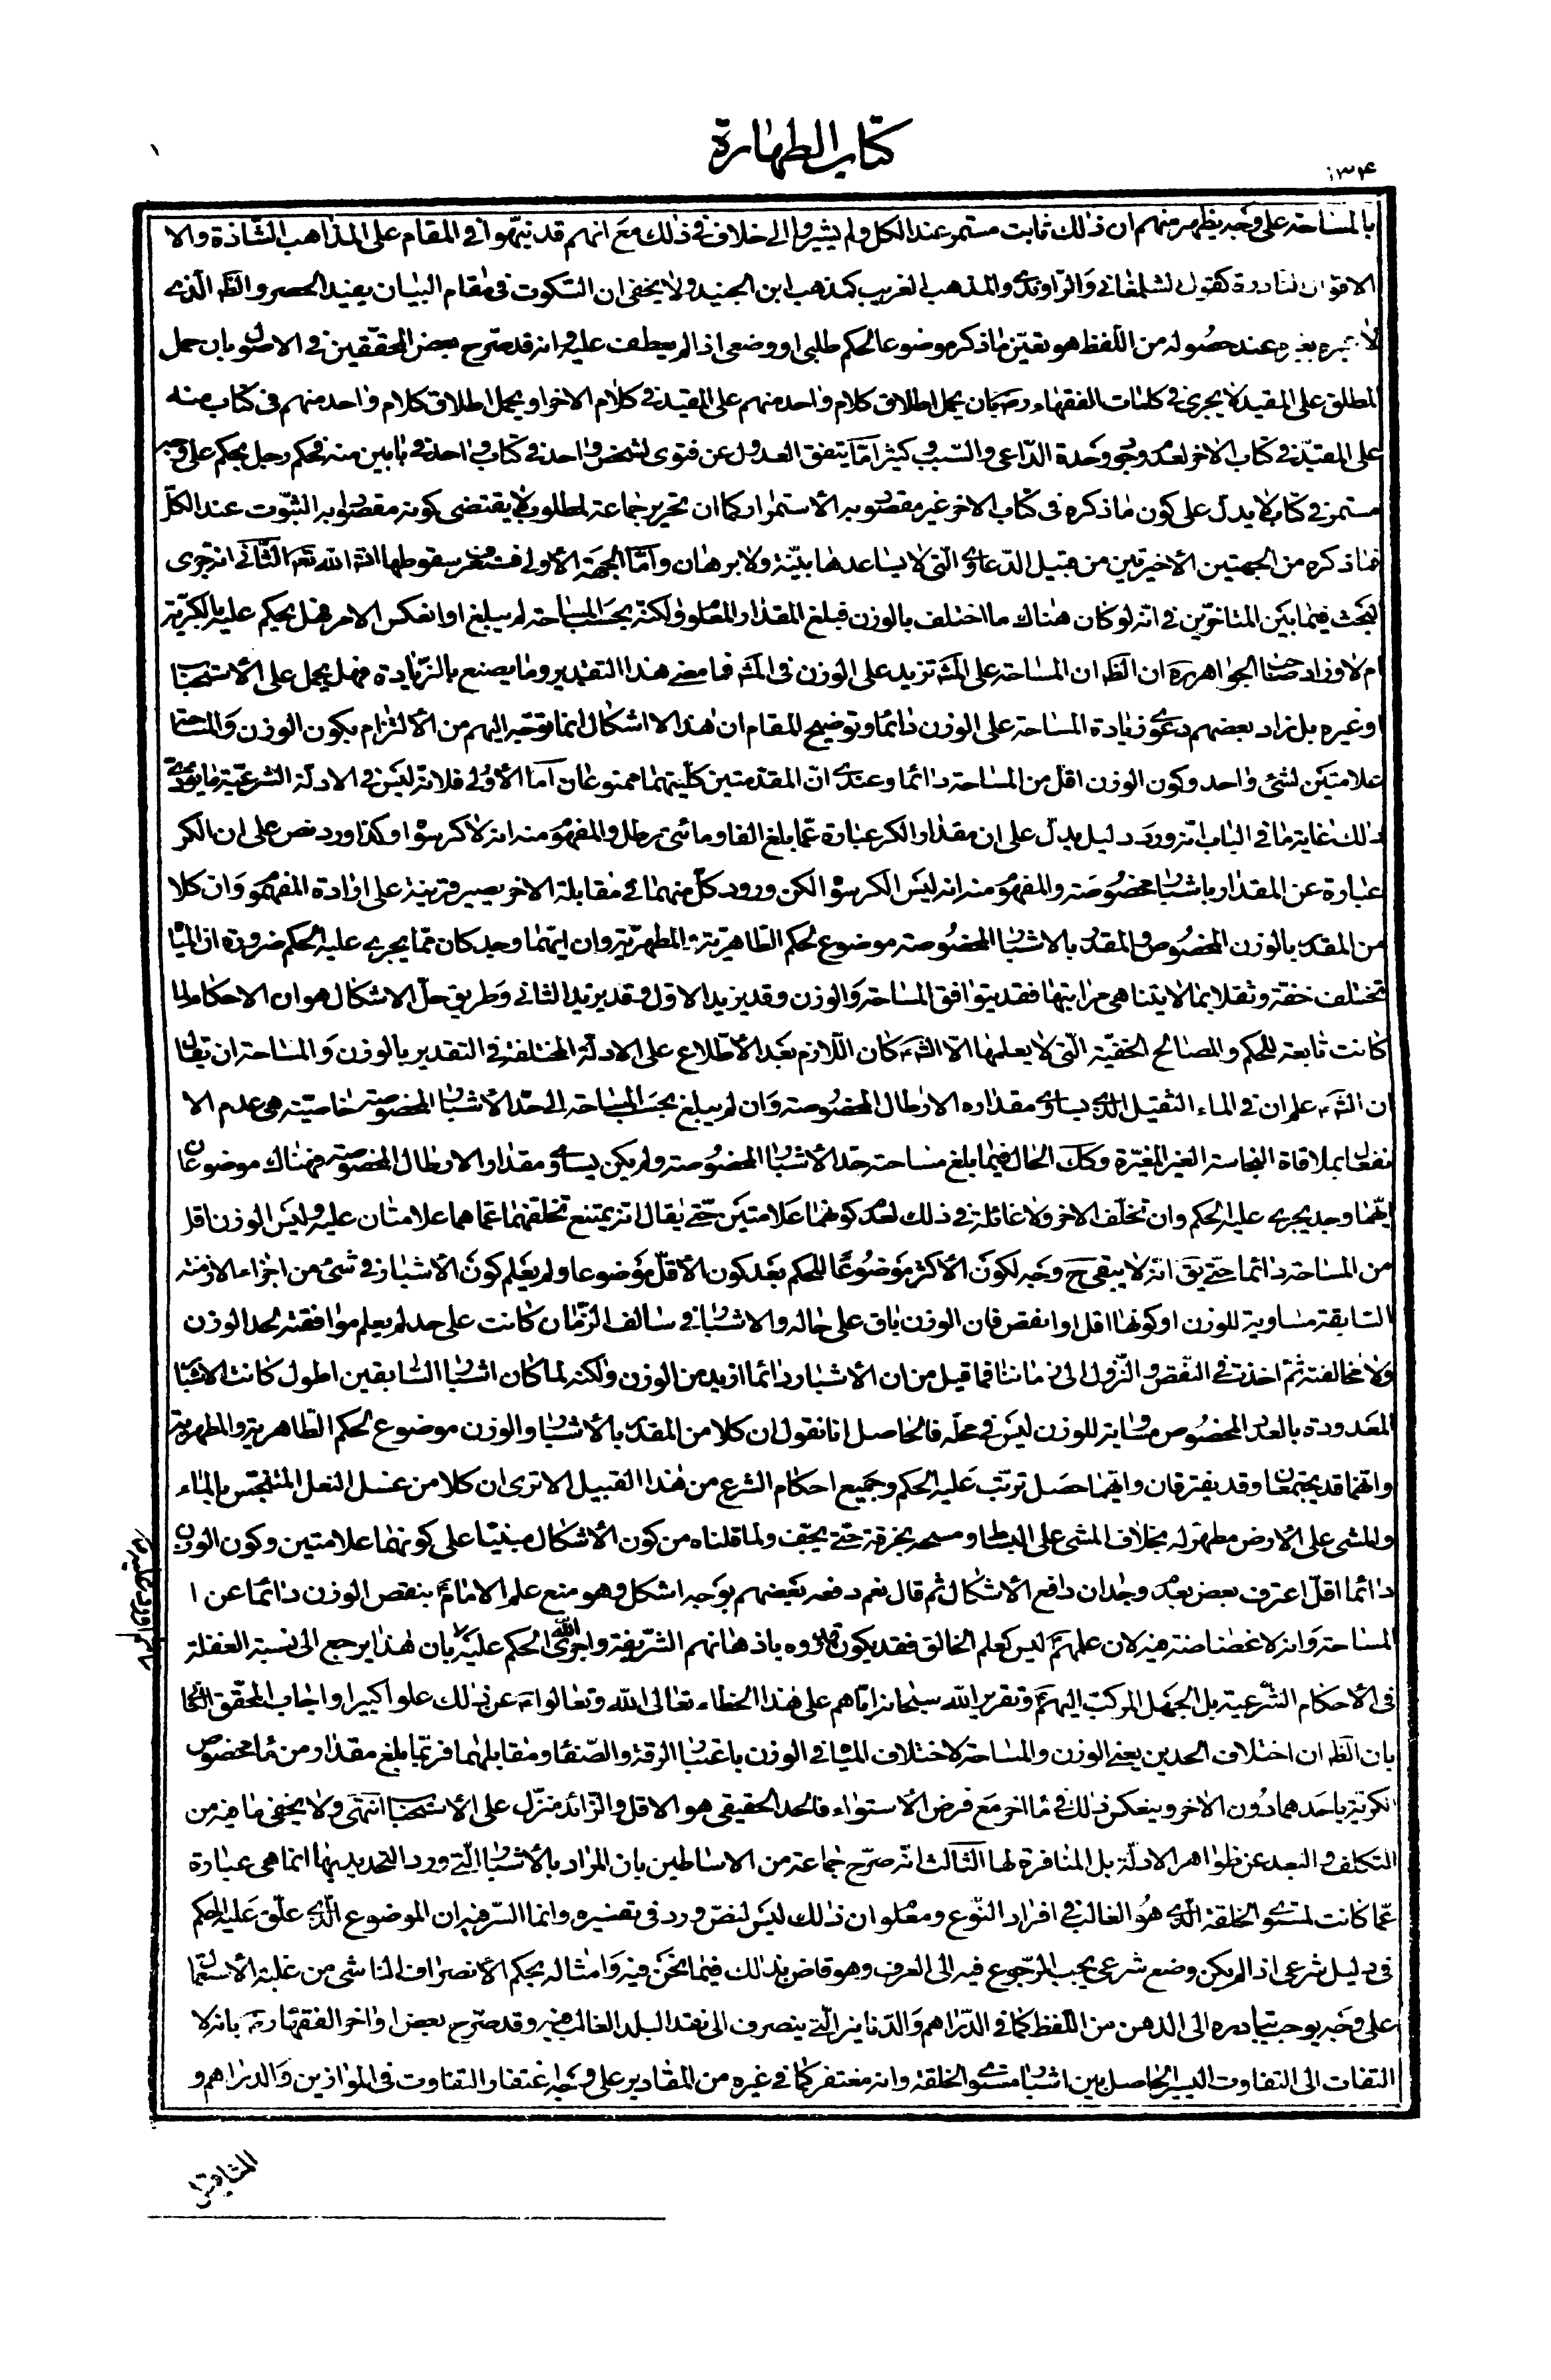 كتاب الطهارة
١٣۴
بالمساحة على وجه يظهر منهم ان ذلك ثابت مستمر عند الكل ولم يشيروا الى خلاف في ذلك مع انهم قد نبّهوا في المقام على المذاهب الشّاذة والا
الاقوال النادرة كقول الشلمغاني والرّاوندى والمذهب الغريب كمذهب ابن الجنيد ولا يخفى ان السّكوت في مقام البيان يفيد الحصر والظّ الّذى
لا عبرة بغيره عند حصوله من اللّفظ هو تعيّن ما ذكر موضوعا لحكم طلبى او وضعى اذا لم يعطف عليه وانه قد صرّح بعض المحقّقين في الاصول بان حمل
المطلق على المقيد لا يجرى في كلمات الفقهاء رض بان يحمل اطلاق كلام واحد منهم على المقيد في كلام الاخر او يحمل اطلاق كلام واحد منهم في كتاب منه
على المقيّد في كتاب الاخر لعدم وجوب وحدة الدّاعى والسّبب وكثيرا مّا يتفق العدول عن فتوى لشخص واحد في كتاب واحد في بابين منه فحكم رجل بحكم على وجه
مستمر في كتاب لا يدلّ على كون ما ذكره في كتاب الاخر غير مقصود به الأستمرار كما ان تحرير جماعة لمطلوب لا يقتضى كونه مقصودا به الثبّوت عند الكلّ
فما ذكره من الجهتين الأخيرتين من قبيل الدّعاوى الّتى لا يساعدها بيّنة ولا برهان وأمّا الجهة الأولى فستعرف سقوطها انش الله تعه الثّانى انه جرى
البحث فيما بين المتاخرّين في انّه لو كان هناك ما اختلف بالوزن فبلغ المقدار المعلوم ولكنّه بحسب المساحة لم يبلغ او انعكس الامر فهل يحكم عليه بالكرّية
ام لا وزاد صاحب الجواهر ره ان الظّ ان المساحة على المش تزيد على الوزن في المش فما معنى هذا التقدير وما يصنع بالزّيادة فهل يحمل على الأستحباب
او غيره بل زاد بعضهم دعوى زيادة المساحة على الوزن دائما وتوضيح المقام ان هذا الاشكال انما يتوجّه اليهم من الألتزام بكون الوزن والمساحة
علامتين لشئ واحد وكون الوزن اقل من المساحة دائما وعندى انّ المقدّمتين كلّيتهما ممنوعتان أمّا الأولى فلانّه ليس في الادلّة الشرعيّة ما يؤدّى
ذلك غاية ما في الباب انّه ورد دليل يدلّ على ان مقدار الكر عبارة عمّا بلغ الفا ومائتى رطل والمفهوم منه انه لا كر سواه وكذا ورد نص على ان الكر
عبارة عن المقدار باشبار مخصوصة والمفهوم منه انه ليس الكر سواه لكن ورود كلّ منهما في مقابلة الاخر يصير قرينة على ارادة المفهوم وان كلا
من المقدّر بالوزن المخصوص والمقدّر بالاشبار المخصوصة موضوع لحكم الطّاهريّة والمطهريّة وان ايّهما وجد كان ممّا يجرى عليه الحكم ضرورة ان المياه
تختلف خفّة وثقلا بما لا يتناهى مراتبها فقد يتوافق المساحة والوزن وقد يزيد الاول وقد يزيد الثانى وطريق حلّ الاشكال هو ان الاحكام لما
كانت تابعة للحكم والمصالح الخفيّة الّتى لا يعلمها الّا الله تعه كان اللّازم بعد الأطّلاع على الادلّة المختلفة في التقدير بالوزن والمساحة ان يقال
ان الله تعه علم ان في الماء الثقيل الّذى يساوى مقداره الارطال المخصوصة وان لم يبلغ بحسب المساحة الى حدّ الأشبار المخصوصة خاصيّة هى عدم الا
نفعال بملاقاة النجاسة الغير المغيّرة وكك الحال فيما بلغ مساحته حدّ الأشبار المخصوصة ولم يكن يساوى مقدار الارطال المخصوصة فهناك موضوعان
ايّهما وجد يجرى عليه الحكم وان تخلّف الاخر ولا غائلة في ذلك لعدم كونهما علامتين حتّى يقال انه يمتنع تخلّفهما عمّا هما علامتان عليه وليس الوزن اقل
من المساحة دائما حتّى يق انه لا يبقى ح وجه لكون الأكثر موضوعا للحكم بعد كون الأقلّ موضوعا ولم يعلم كون الأشبار في شئ من اجزاء الازمنة
السّابقة مساوية للوزن او كونها اقل او انقص فان الوزن باق على حاله والاشبار في سالف الزّمان كانت على حد لم يعلم موافقته لحد الوزن
ولا مخالفته ثمّ اخذت في النّقص والنّزول الى زماننا فما قيل من ان الأشبار دائما ازيد من الوزن ولكنه لما كان اشبار السّابقين اطول كانت الاشبار
المعدودة بالعدد المخصوص مساوية للوزن ليس في محلّه فالحاصل انا نقول ان كلا من المقدّر بالأشبار والوزن موضوع لحكم الطّاهرية والمطهرية
وانّهما قد يجتمعان وقد يفترقان وايّهما حصل ترتّب عليه الحكم وجميع احكام الشرع من هذا القبيل الا ترى ان كلا من غسل النعل المتنجّس بالماء
والمشى على الأرض مطهّر له بخلاف المشى على البساط ومسحه بخرقة حتّى يجفّ ولما قلناه من كون الأشكال مبنيّا على كونهما علامتين وكون الوزن
دائما اقلّ اعترف بعض بعدم وجدان دافع الأشكال ثم قال نعم دفعه بعضهم بوجه اشكل وهو منع علم الامام ع بنقص الوزن دائما عن ا
المساحة وانه لا غضاضة فيه لان علمهم ع ليس كعلم الخالق فقد يكون قدّروه باذهانهم الشّريفة واجرى الله الحكم عليه بان هذا يرجع الى نسبة الغفلة
في الأحكام الشّرعية بل الجهل المركّب اليهم ع وتقرير الله سبحانه ايّاهم على هذا الخطاء تعالى الله وتعالوا ع عن ذلك علوا كبيرا واجاب المحقّق
بان الظّ ان اختلاف الحدين يعنى الوزن والمساحة لاختلاف المياه في الوزن باعتبار الرقّة والصّفاء ومقابلهما فربّما بلغ مقدار من ماء مخصوص
الكرّية باحدهما دون الاخر وينعكس ذلك في ماء اخر مع فرض الأستواء فالحد الحقيقى هو الاقل والزّائد منزّل على الأستحباب انتهى ولا يخفى ما فيه من
التكلّف والبعد عن ظواهر الادلّة بل المنافرة لها الثّالث انّه صرّح جماعة من الاساطين بان المراد بالأشبار الّتى ورد التحديد بها انما هى عبارة
عمّا كانت لمستوى الخلقة الّذى هو الغالب في افراد النّوع ومعلوم ان ذلك ليس لنصّ ورد في تفسيره وانما السّر فيه ان الموضوع الّذى علّق عليه الحكم
في دليل شرعى اذا لم يكن وضع شرعى يجب الرّجوع فيه الى العرف وهو قاض بذلك فيما نحن فيه وامثاله بحكم الأنصراف الناشى من غلبة الأستعمال
على وجه يوجب تبادره الى الذهن من اللّفظ كما في الدّراهم والدّنانير الّتى ينصرف الى نقد البلد الغالب فيه وقد صرّح بعض اواخر الفقهاء ره بانه لا
التفات الى التفاوت اليسير الحاصل بين اشبار مستوى الخلقة وانه مغتفر كما في غيره من المقادير على وجه اغتفار التفاوت في الموازين والدراهم و